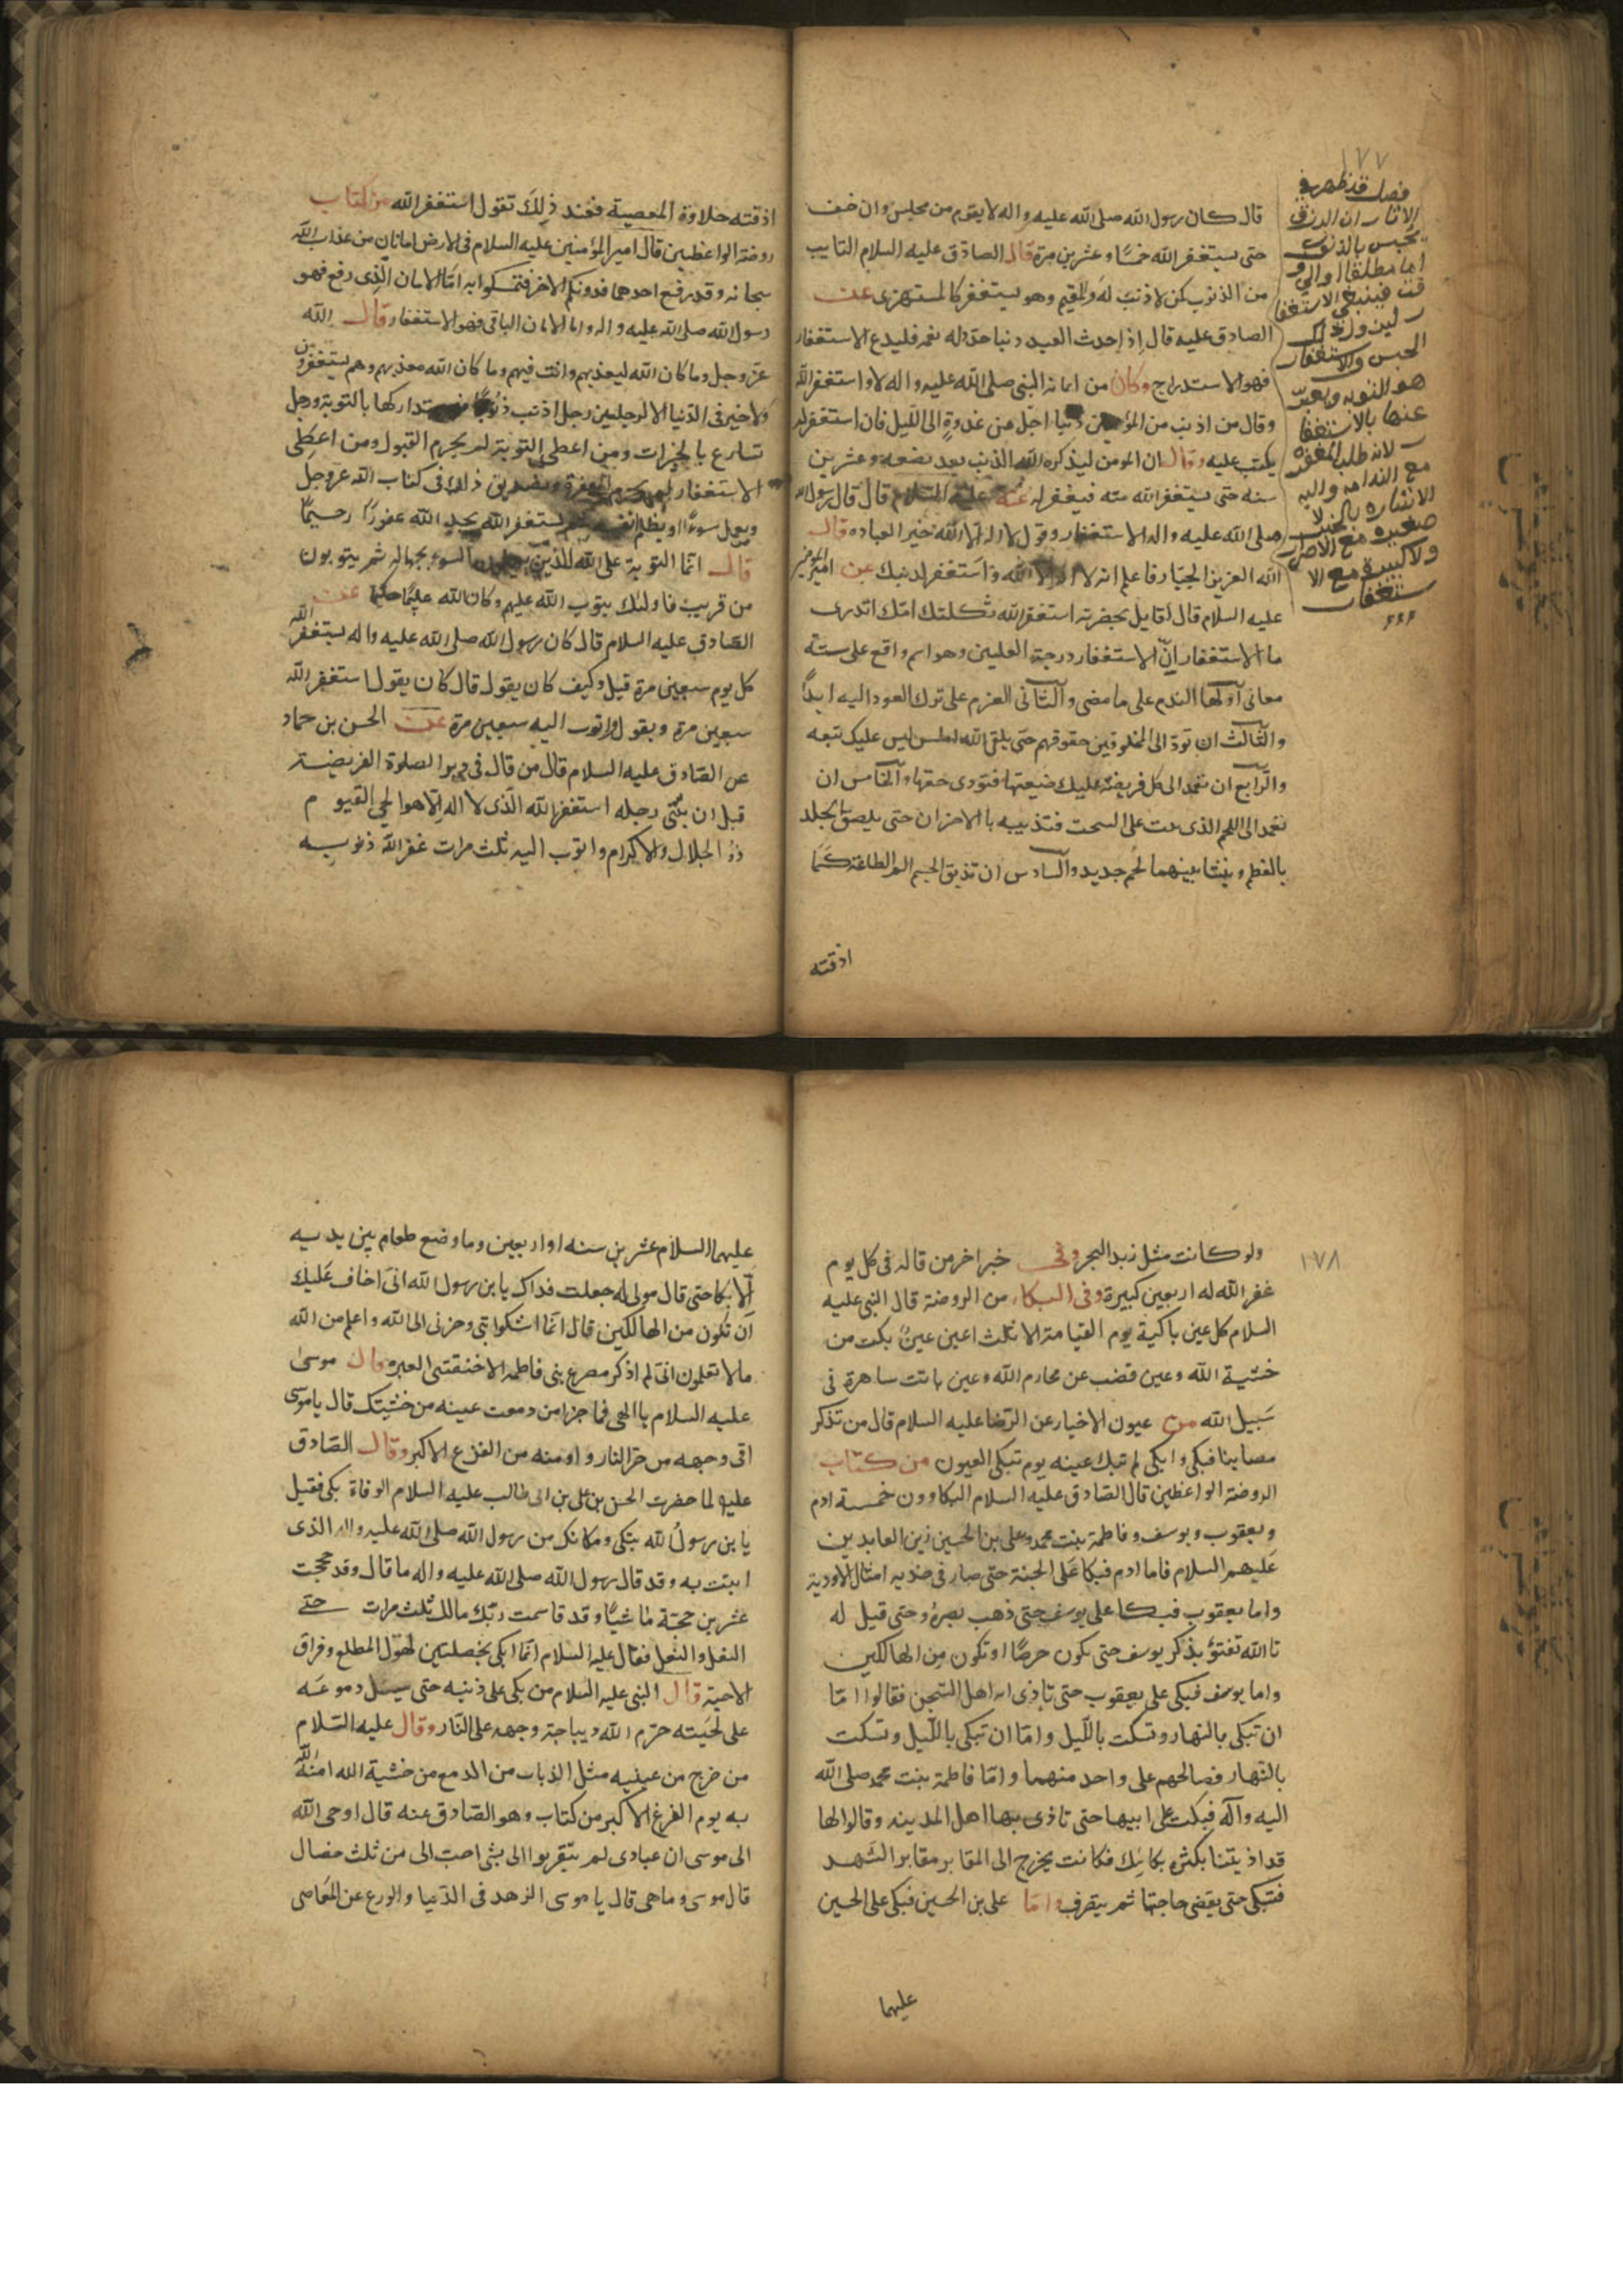 ١٧٧
فصل قد ظهر في
الاثار ان الرزق
يحبس بالذنوب
اما مطلقا او الي و
قت فينبغي الاستغفا
ر لين ول ذلك
الحبس والاستغفار
هو التوبه ويعبر
عنها بالاستغفا
ر لانه طلب المغفره
مع الندامه واليه
الاشاره بالخبر لا
صغيره مع الاصرار
ولا كبيرة مع الا
ستغفار
قال كان رسول الله صلى الله عليه واله لا يقوم من مجلس وان خف
حتى يستغفر الله خمسًا وعشرين مرة قال الصادق عليه السلام التايب
من الذنوب كمن لا ذنب له والمقيم وهو يستغفر كالمستهزى عن
الصادق عليه قال اذا احدث العبد ذنبا جدد له نعمه فليدع الاستغفار
فهو الاستدراج وكان من ايمانه النبى صلى الله عليه واله لا واستغفر الله
وقال من اذنب من المؤمنين ذنبا اجل من غدوةٍ الى الليل فان استغفر لم
يكتب عليه وقال ان المومن ليذكره الله الذنب بعد بضعه وعشرين
سنه حتى يستغفر الله منه فيغفر له عنه عليه السلام قال قال رسول الله
صلى الله عليه واله الاستغفار وقول لا اله الا الله خير العباده قال
الله العزيز الجبار فاعلم انه لا اله الا الله واستغفر لذنبك عن امير المومنين
عليه السلام قال لقايل بحضرته استغفر الله ثكلتك امك اتدرى
ما الاستغفار انّ الاستغفار درجة العليين وهو اسم واقع على ستة
معانى اولها الندم على ما مضى والثانى العزم على ترك العود اليه ابدًا
والثالث ان تود الى المخلوقين حقوقهم حتى يلقى الله املس ليس عليك تبعه
والرابع ان تعمد الى كل فريضه عليك ضيعتها فتودى حقها والخامس ان
تعمد الى اللحم الذى نبت على السحت فتذيبه بالاحزان حتى يلصق الجلد
بالعظم وينشا بينهما لحم جديد والسادس ان تذيق الجسم الم الطاعة كما
اذقته
اذقته حلاوة المعصية فعند ذلك تقول استغفر الله من كتاب
روضة الواعظين قال امير المؤمنين عليه السلام فى الارض امانان من عذاب الله
سبحانه وقد رفع احدهما فدونكم الاخر فتمسكوا به امّا الامان الذى رفع فهو
رسول الله صلى الله عليه واله واما الامان الباقى فهو الاستغفار قال الله
عز وجل وما كان الله ليعذبهم وانت فيهم وما كان الله معذبهم وهم يستغفرون
ولا خير فى الدنيا الا لرجلين رجل اذنب ذنوبًا فهو يتداركها بالتوبة ورجل
تسارع بالخيرات ومن اعطى التوبة لم يحرم القبول ومن اعطى
الاستغفار لم يحرم المغفرة وتصديق ذلك فى كتاب الله عز وجل
ويعمل سوءًا او يظلم نفسه ثم يستغفر الله يجد الله غفورًا رحيمًا
قال انما التوبة على الله للذين يعملون السوء بجهاله ثم يتوبون
من قريب فاولئك يتوب الله عليهم وكان الله عليمًا حكيما عن
الصادق عليه السلام قال كان رسول الله صلى الله عليه واله يستغفر الله
كل يوم سبعين مرة قيل وكيف كان يقول قال كان يقول استغفر الله
سبعين مرة ويقول واتوب اليه سبعين مرة عن الحسن بن حماد
عن الصادق عليه السلام قال من قال فى دبر الصلوة الفريضة
قبل ان يثنى رجله استغفر الله الذى لا اله الا هو الحى القيوم
ذو الجلال والاكرام واتوب اليه ثلث مرات غفر الله ذنوبه
١٧٨
ولو كانت مثل زبد البحر وفى خبر اخر من قاله فى كل يوم
غفر الله له اربعين كبيرة وفى البكاء من الروضة قال النبى عليه
السلام كل عين باكية يوم القيامة الا ثلث اعين عينٌ بكت من
خشية الله وعين قضب عن محارم الله وعين باتت ساهرة فى
سبيل الله من عيون الاخبار عن الرضا عليه السلام قال من تذكر
مصابنا فبكى وابكى لم تبك عينه يوم تبكى العيون من كتاب
الروضة الواعظين قال الصادق عليه السلام البكاوون خمسة ادم
ويعقوب ويوسف وفاطمة بنت محمد وعلى بن الحسين زين العابدين
عليهم السلام فاما ادم فبكا على الجنة حتى صار فى خديه امثال الاودية
واما يعقوب فبكا على يوسف حتى ذهب بصره وحتى قيل له
تاالله تفتؤ بذكر يوسف حتى تكون حرضًا او تكون من الهالكين
واما يوسف فبكى على يعقوب حتى تاذى به اهل السجن فقالوا امّا
ان تبكى بالنهار وتسكت بالليل وامّا ان تبكى بالليل وتسكت
بالنهار فصالحهم على واحد منهما وامّا فاطمة بنت محمد صلى الله
اليه وآله فبكت على ابيها حتى تاذى بها اهل المدينه وقالوا لها
قد اذيتنا بكثره بكائك فكانت يخرج الى المقابر مقابر الشهد
فتبكى حتى يقضى حاجتها ثم ينصرف وامّا على بن الحسين فبكى على الحسين
عليهما
عليهما السلام عشرين سنه او اربعين وما وضع طعام بين يديه
الّا بكا حتى قال مولى له جعلت فداك يا بن رسول الله انى اخاف عليك
ان تكون من الهالكين قال انما اشكوا بثى وحزنى الى الله واعلم من الله
ما لا تعلمون انى لم اذكر مصرع بنى فاطمه الا خنقتنى العبره قال موسى
عليه السلام يا الهى فما جزا من دمعت عينه من خشيتك قال يا موسى
اقى وجهه من حر النار واومنه من الفزع الاكبر وقال الصادق
عليه لما حضرت الحسن بن على بن ابى طالب عليه السلام الوفاة بكى فقيل
يا بن رسول الله تبكى ومكانك من رسول الله صلى الله عليه واله الذى
انبت به وقد قال رسول الله صلى الله عليه واله ما قال وقد حججت
عشرين حجة ماشيًا وقد قاسمت ربك مالك ثلث مرات حتى
النعل والنعل فقال عليه السلام انما ابكى بخصلتين لهول المطلع وفراق
الاحبة قال النبى عليه السلام من بكى على ذنبه حتى يسيل دموعه
على لحيته حرم الله ديباجة وجهه على النار وقال عليه السلام
من خرج من عينيه مثل الذباب من الدمع من خشية الله امنه الله
به يوم الفزع الاكبر من كتاب وهو الصادق عنه قال اوحى الله
الى موسى ان عبادى لم يتقربوا الى بشى احب الى من ثلث خصال
قال موسى وما هى قال يا موسى الزهد فى الدنيا والورع عن المعاصى